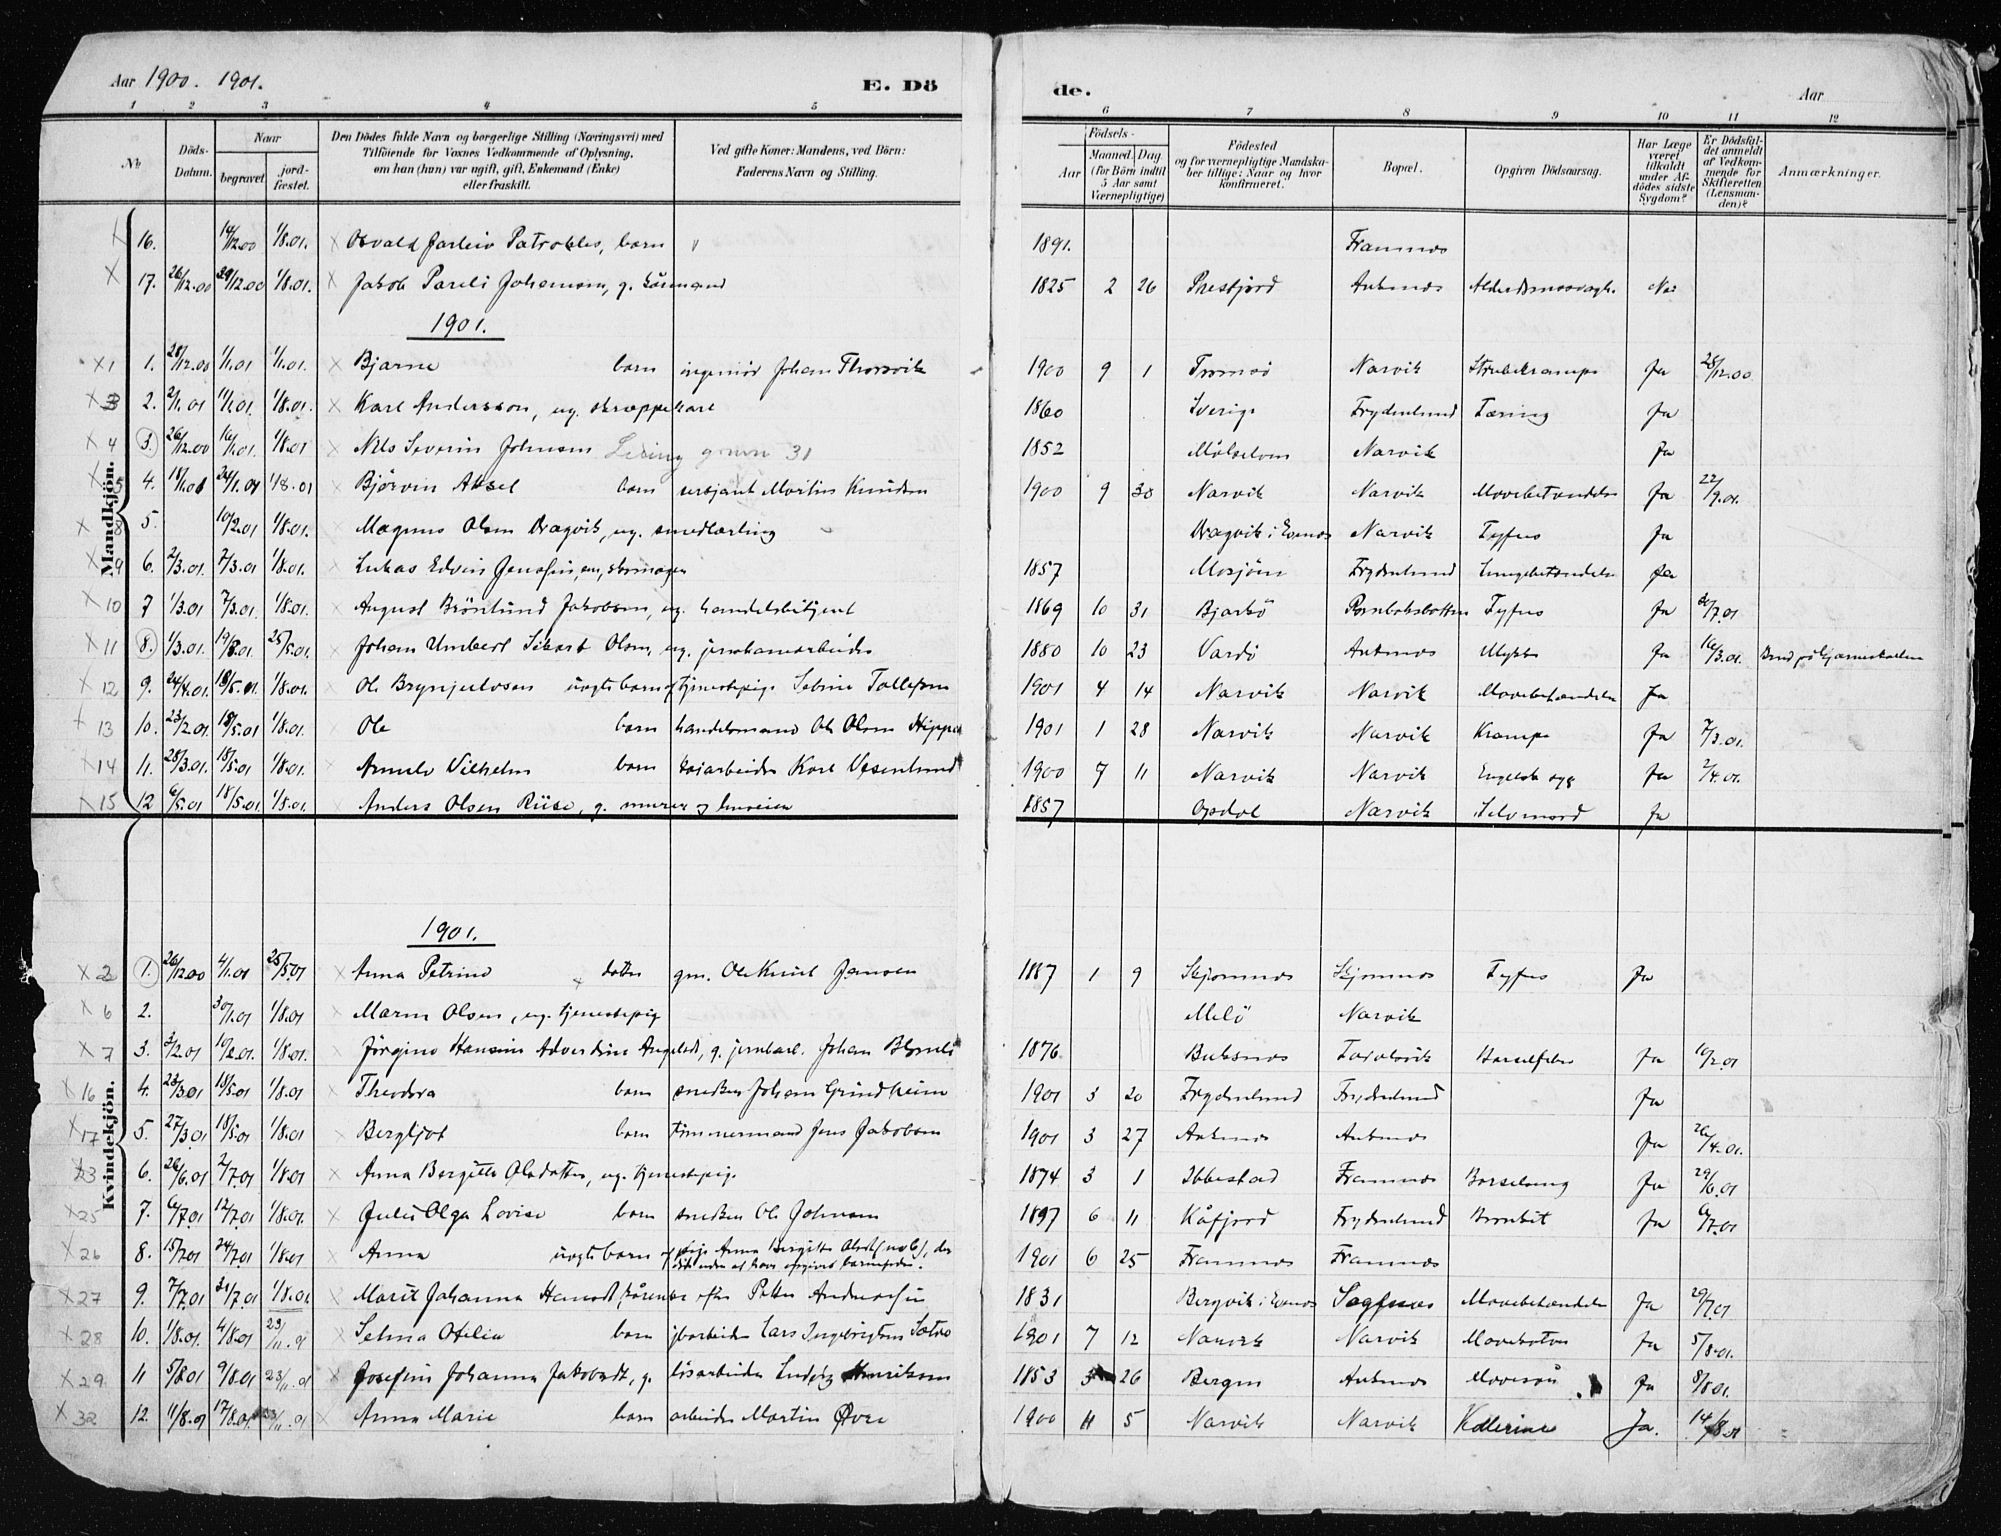 Aar 1900. 1901. E. Dö de. Aar
1 2 3 4 5 6 7 8 9 10 11 12
№ Döds-Datum. Naar begravet. jord-fæstet. Den Dödes fulde Navn og borgerlige Stilling (Næringsvei) med Tilföiende for Voxnes Vedkommende af Oplysning, om han (hun) var ugift, gift, Enkemand (Enke) eller fraskilt. Ved gifte Koner: Mandens, ved Börn: Faderens Navn og Stilling. Födsels- Aar Maaned. Dag. (for Börn indtil 5 Aar samt Værnepligtige) Födested og for værnepligtige Mandska-ber tillige: Naar og hvor konfirmeret. Bopæl. Opgiven Dödsaarsag. Har Læge været tilkaldt under Af-dödes sidste Sygdom? Er Dödsfal-det anmeldt af Vedkom-mende for Skifteretten (Lensman-den)? Anmærkninger.
Mandkjön.
16. 14/12.00 1/8.01. Osvald Patroklus, barn 1891. Framnes
17. 26/12.00 29/12.00 1/8.01. Jakob Pareli Johansen, g. 1825 2 26 Presfjord Ankenes Nei
1901.
x1 1. 28/12.00 1/1.01 1/1.01. Bjarne barn ingeniör Johan Thorsvik 1900 9 1 Tromsö Narvik Strubekrampe Ja 28/12.00
x3 2. 2/1.01 11/1.01 1/8.01. Karl Andersson, ug. skræppekarl 1860 Sverige Frydenlund Tæring Ja
x4 3. 26/12.00 16/1.01. 1/8.01 Nils Severin Johnsen 31 1852 Målselven Narvik Ja
x5 4. 18/1.01 24/1.01 1/8.01 Björvin Aksel barn sersjant Martin Knudsen 1900 9 30 Narvik Narvik Mavebetændelse Ja 22/9.01.
x8 5. 10/2.01 1/8.01. Magnus Olsen Dragvik, ug. smedlærling Dragvik i Evenes Narvik Tyfus Ja
x9 6. 2/3.01. 7/3.01 1/8.01. Lukas Edvin Jensen, em, skomager 1857 Mosjöen Frydenlund Lungebetændelse Ja
x10 7 1/3.01 7/3.01. 1/8.01. August Brönlund Jakobsen, ug. handelsbetjent 1869 10 31 Bjarkö Rombaksbotten Tyfus Ja 20/7.01
x11 8. 1/3.01. 19/3.01. 25/5.01. Johan Umbert Sikart Olsen, ug. jernbanearbeider 1880 10 23 Vardö Ankenes Ulykke Ja 16/3.01. Brud på hjerneskallen
x12 9. 24/4.01. 18/5.01. 1/8.01. Ole Brynjulvsen uægte barn af tjenestepige Sebine Tollefsen 1901 4 14 Narvik Narvik Mavebetændelse Ja
x13 10. 23/2.01. 18/5.01 1/8.01. Ole barn handelsmand Ole Olsen Hippe 1901 1 28 Narvik Narvik Krampe Ja 7/3.01.
x14 11. 28/3.01. 18/5.01 1/8.01. Vilhelm barn Karl Vesenlund 1900 7 11 Narvik Narvik Engelsk syge Ja 2/4.01.
x15 12 6/5.01 18/5.01. 1/8.01. Anders Olsen Riise, g. murer og huseier 1857 Opdal Narvik Selvmord Ja
Kvindekjön.
1901.
x2 1. 26/12.00 4/1.01 25/5.01 Anna Petrine datter gm. Ole Knut Jansen 1887 1 9 Skjomnes Skjomnes Tyfus Ja
x6 2. 30/1.01 1/8.01 Maren Olsen, ug. tjenestepige Melö Narvik
x7 3. 3/2.01 10/2.01. 1/8.01. Jörgine Hansine g. jernbarb. Johan 1876 Buksnes Taraldsvik Barselfeber Ja 10/2.01
x16 4. 23/3.01 18/5.01 1/8.01 Theodora barn snedker Johan Grindheim 1901 3 20 Frydenlund Frydenlund Ja
x17 5. 27/3.01 18/5.01 1/8.01 Bergljot barn Tömmermand Jens Jakobsen 1901 3 27 Ankenes Ankenes Ja 26/4.01.
x23 6. 26/6.01 2/7.01 1/8.01 Anna Bergitte Olsdatter, ug. tjenestepige. 1874 3 1 Ibbestad Framnes Barselseng Ja 29/6.01
x25 7. 6/7.01 12/7.01 1/8.01. Julie Olga Lovise barn snedker Ole Johnsen 1897 6 11 Kåfjord Frydenlund Bronkit Ja 6/7.01
x26 8. 15/7.01 24/7.01 1/8.01 Anna uægte barn af pige Anna Bergitte Olsdt (no 6), der döde uden at have opgivet barnefader. 1901 6 25 Framnes Framnes
x27 9. 7/7.01 21/7.01 1/8.01 Marit Johanna Hansdt, efter Petter Andreassen 1831 Bergvik i Evenes Sagfnes Mavebetændelse Ja 29/7.01
x28 10. 1/8.01. 4/8.01 23/11.01 Selma Otilie barn jbarbeider Lars Ingebrigtsen Sætre 1901 7 12 Narvik Narvik Mavekatar Ja 5/8.01.
x29 11 5/8.01 9/8.01 23/11.01 Josefine Johanna Jakobsdt, g. lösarbeider Ludvig Henriksen 1853 3 26 Bergen Ankenes Ja 8/8.01.
x32 12. 11/8.01 17/8.01 23/11.01 Anna Marie barn arbeider Martin Övre 1900 11 5 Narvik Narvik Kollerine Ja. 14/8.01